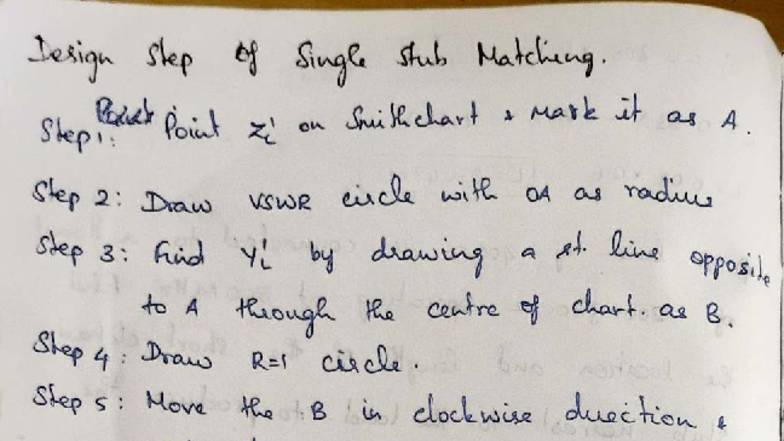 Design Step of Single Stub Matching.
Step 1: Point Zi' on Smithchart & Mark it as A.
Step 2: Draw VSWR circle with OA as radius
Step 3: Find Yi' by drawing a st. line opposite
to A through the centre of chart. as B.
Step 4: Draw R=1 circle.
Step 5: Move the B in clockwise direction &